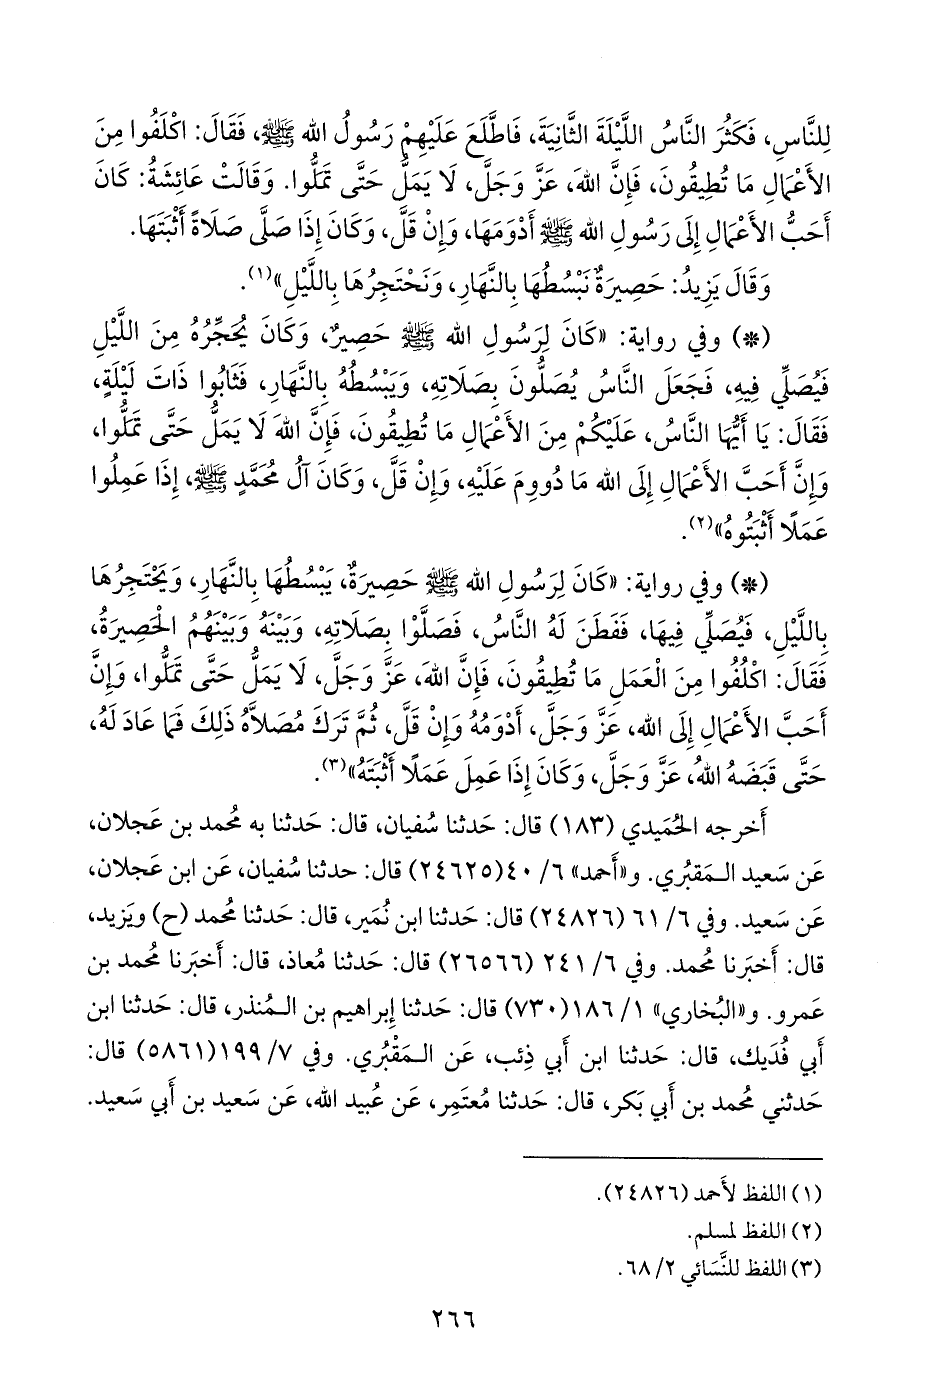 لِلنَّاسِ، فَكَثُرَ النَّاسُ اللَّيْلَةَ الثَّانِيَةَ، فَاطَّلَعَ عَلَيْهِمْ رَسُولُ الله ﷺ، فَقَالَ: اكْلَفُوا مِنَ
الأَعْمَالِ مَا تُطِيقُونَ، فَإِنَّ اللهَ، عَزَّ وَجَلَّ، لَا يَمَلُّ حَتَّى تَمَلُّوا. وَقَالَتْ عَائِشَةُ: كَانَ
أَحَبُّ الأَعْمَالِ إِلَى رَسُولِ الله ﷺ أَدْوَمَهَا، وَإِنْ قَلَّ، وَكَانَ إِذَا صَلَّى صَلَاةً أَثْبَتَهَا.
وَقَالَ يَزِيدُ: حَصِيرَةٌ نَبْسُطُهَا بِالنَّهَارِ، وَنَحْتَجِرُهَا بِاللَّيْلِ»(١).
(*) وفي رواية: «كَانَ لِرَسُولِ الله ﷺ حَصِيرٌ، وَكَانَ يُحَجِّرُهُ مِنَ اللَّيْلِ
فَيُصَلِّي فِيهِ، فَجَعَلَ النَّاسُ يُصَلُّونَ بِصَلَاتِهِ، وَيَبْسُطُهُ بِالنَّهَارِ، فَثَابُوا ذَاتَ لَيْلَةٍ،
فَقَالَ: يَا أَيُّهَا النَّاسُ، عَلَيْكُمْ مِنَ الأَعْمَالِ مَا تُطِيقُونَ، فَإِنَّ اللهَ لَا يَمَلُّ حَتَّى تَمَلُّوا،
وَإِنَّ أَحَبَّ الأَعْمَالِ إِلَى الله مَا دُووِمَ عَلَيْهِ، وَإِنْ قَلَّ، وَكَانَ آلُ مُحَمَّدٍ ﷺ، إِذَا عَمِلُوا
عَمَلًا أَثْبَتُوهُ»(٢).
(*) وفي رواية: «كَانَ لِرَسُولِ الله ﷺ حَصِيرَةٌ، يَبْسُطُهَا بِالنَّهَارِ، وَيَحْتَجِرُهَا
بِاللَّيْلِ، فَيُصَلِّي فِيهَا، فَفَطَنَ لَهُ النَّاسُ، فَصَلَّوْا بِصَلَاتِهِ، وَبَيْنَهُ وَبَيْنَهُمُ الْحَصِيرَةُ،
فَقَالَ: اكْلُفُوا مِنَ الْعَمَلِ مَا تُطِيقُونَ، فَإِنَّ اللهَ، عَزَّ وَجَلَّ، لَا يَمَلُّ حَتَّى تَمَلُّوا، وَإِنَّ
أَحَبَّ الأَعْمَالِ إِلَى الله، عَزَّ وَجَلَّ، أَدْوَمُهُ وَإِنْ قَلَّ، ثُمَّ تَرَكَ مُصَلَّاهُ ذَلِكَ فَمَا عَادَ لَهُ،
حَتَّى قَبَضَهُ اللهُ، عَزَّ وَجَلَّ، وَكَانَ إِذَا عَمِلَ عَمَلًا أَثْبَتَهُ»(٣).
أَخرجه الحُمَيدي (١٨٣) قال: حَدثنا سُفيان، قال: حَدثنا به مُحمد بن عَجلان،
عَن سَعيد الـمَقبُري. و«أَحمد» ٦/ ٤٠(٢٤٦٢٥) قال: حدثنا سُفيان، عَن ابن عَجلان،
عَن سَعيد. وفي ٦/ ٦١ (٢٤٨٢٦) قال: حَدثنا ابن نُمَير، قال: حَدثنا مُحمد (ح) ويَزيد،
قال: أَخبَرنا مُحمد. وفي ٦/ ٢٤١ (٢٦٥٦٦) قال: حَدثنا مُعاذ، قال: أَخبَرنا مُحمد بن
عَمرو. و«البُخاري» ١/ ١٨٦(٧٣٠) قال: حَدثنا إِبراهيم بن الـمُنذر، قال: حَدثنا ابن
أَبي فُدَيك، قال: حَدثنا ابن أَبي ذِئب، عَن الـمَقْبُري. وفي ٧/ ١٩٩(٥٨٦١) قال:
حَدثني مُحمد بن أَبي بَكر، قال: حَدثنا مُعتَمِر، عَن عُبيد الله، عَن سَعيد بن أَبي سَعيد.
(١) اللفظ لأَحمد (٢٤٨٢٦).
(٢) اللفظ لمسلم.
(٣) اللفظ للنَّسَائي ٢/ ٦٨.
٢٦٦